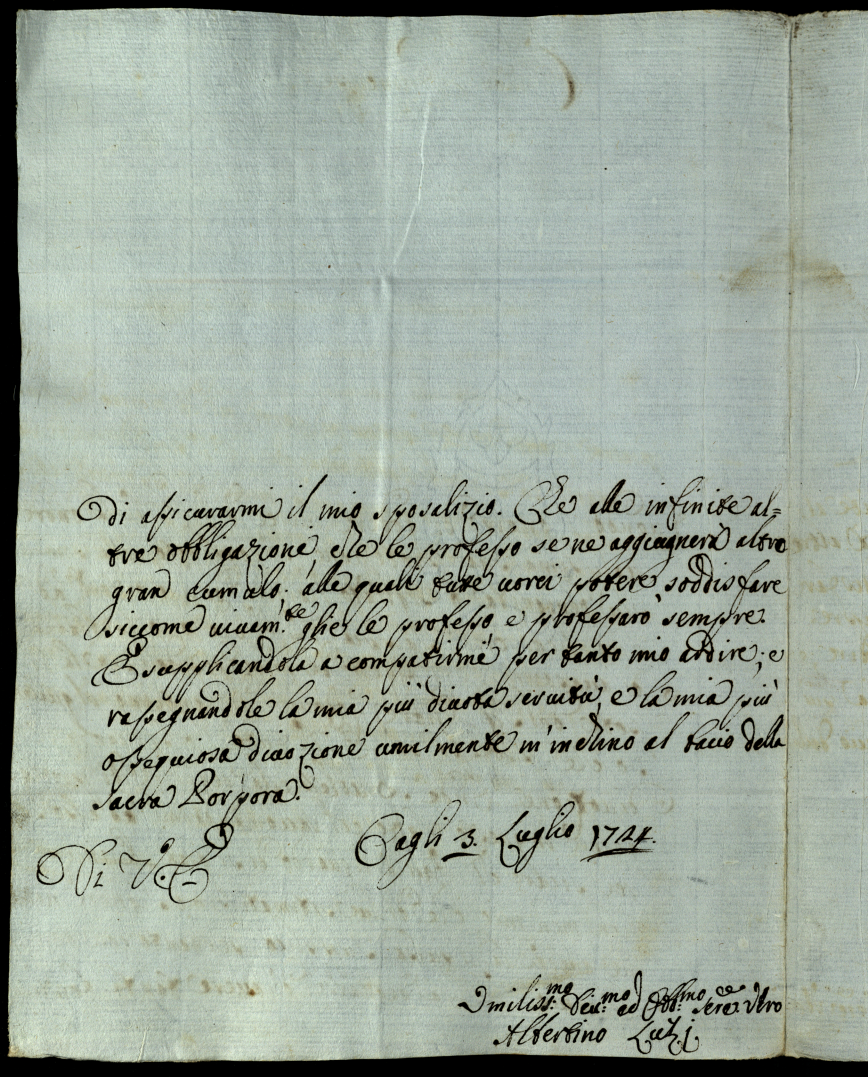 di assicurarmi il mio sposalizio. Che alle infinite al=
tre obbligazioni, che le professo se ne aggiugnerà altro
gran cumulo; alle quali tute uorei potere soddisfare
siccome uiuam.te glie le professo e professarò sempre.
E supplicandola a compatirmi per tanto mio ardire; e
rassegnandole la mia più diuota seruitù, e la mia più
ossequiosa diuozione umilmente m'inchino al bacio della
sacra Porpora.
Cagli 3. Luglio 1724.
Di V.E.
Umiliss.mo Deu.mo ed Obb.mo Sere. Vro
Albertino Luzi